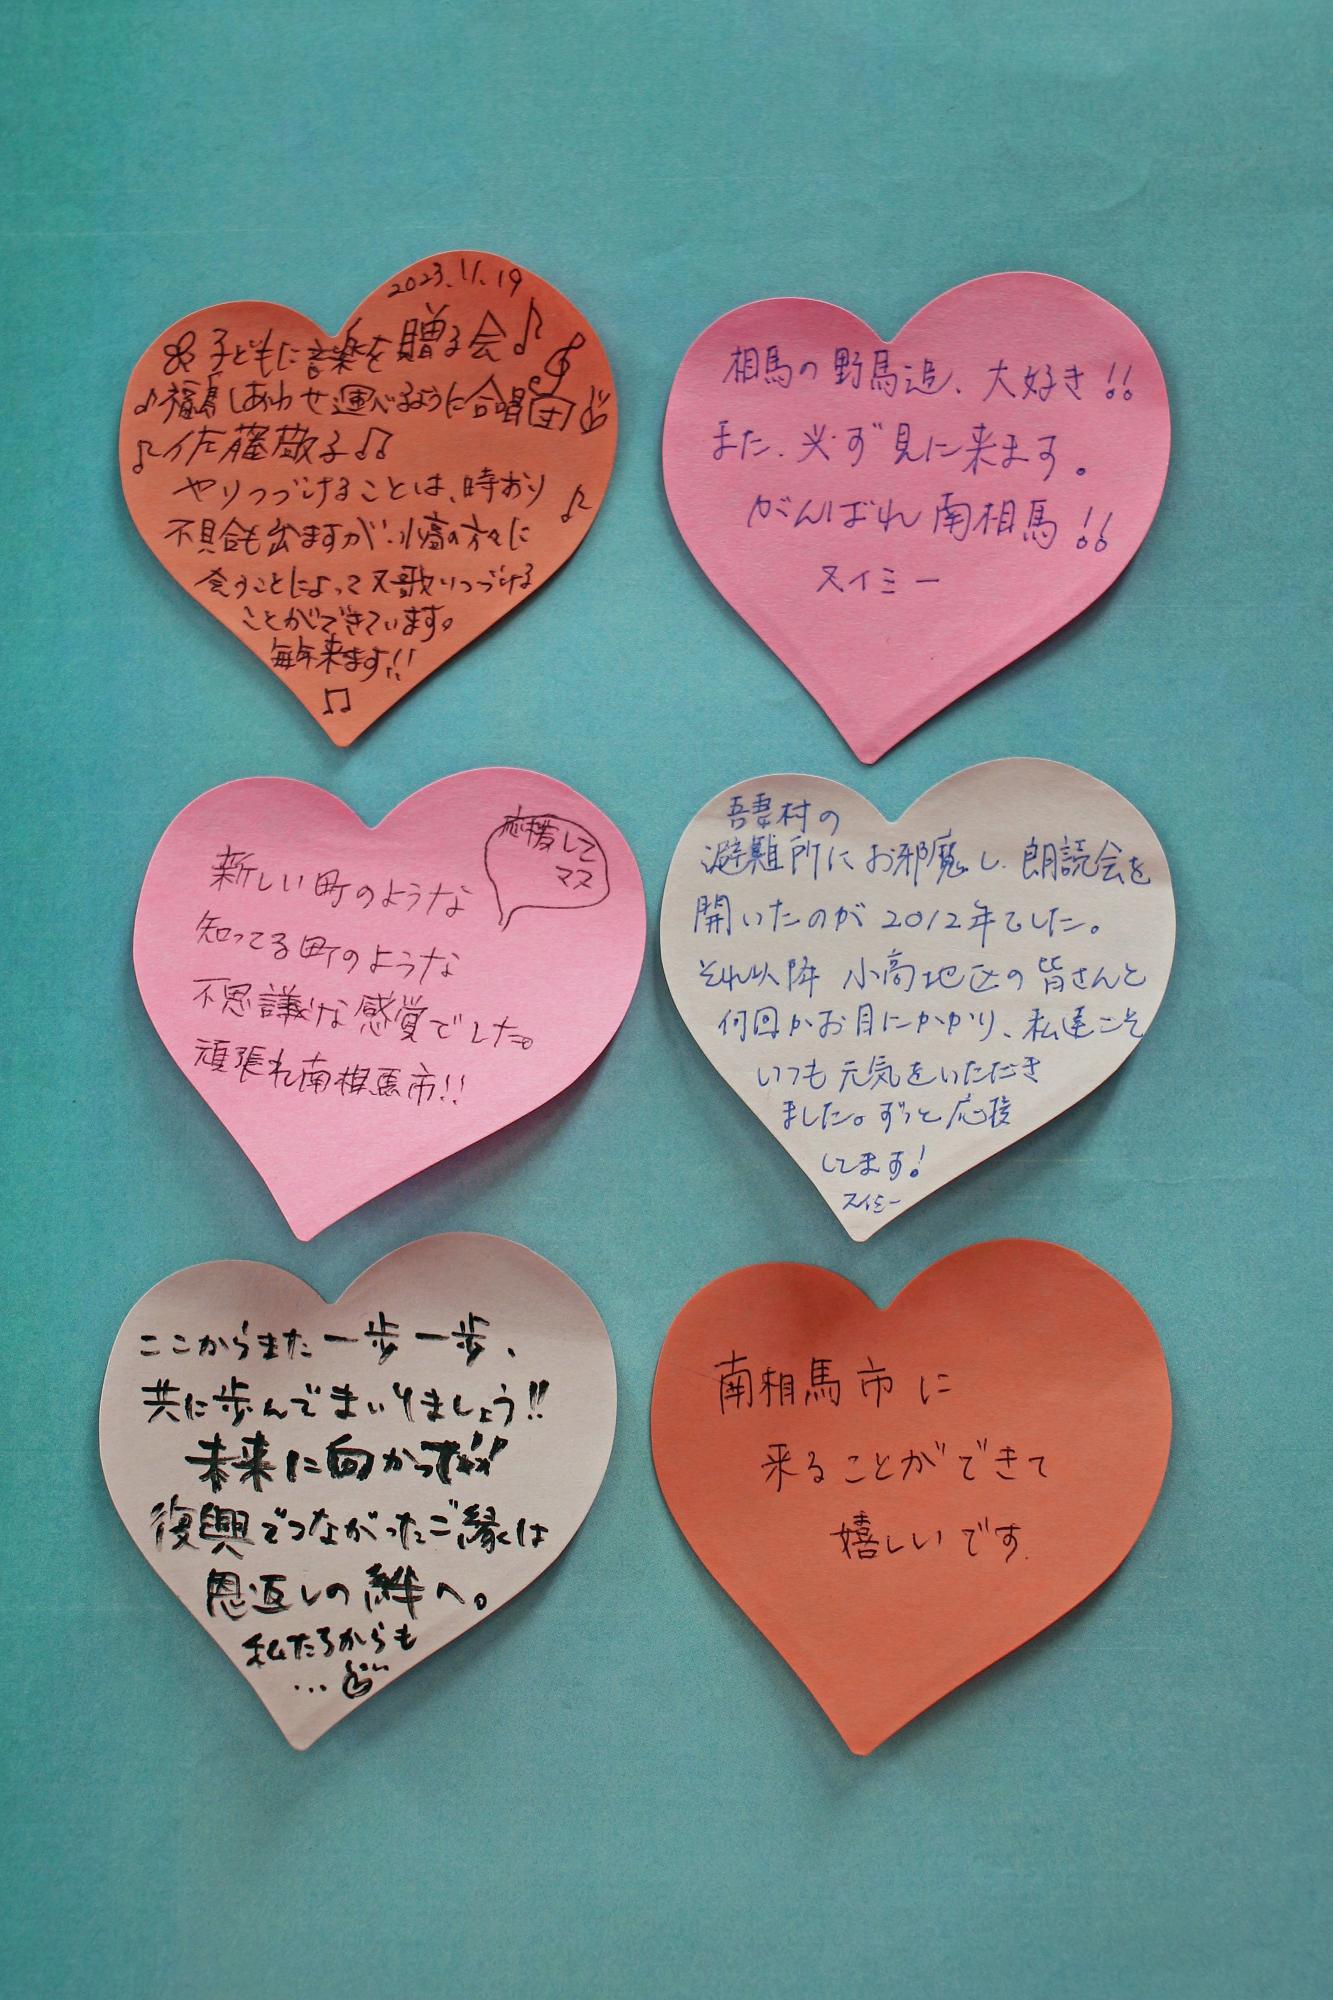 2023.11.19
子どもに音楽を贈る会♪
♪福島しあわせ運べるように合唱団
♪佐藤敬子♫
やりつづけることは、時おり♪
不具合も出ますが、小高の方々に
会うことによって又歌いつづける
ことができています。
毎年来ます!!
♫
相馬の野馬追、大好き!!
また、必ず見に来ます。
がんばれ南相馬!!
スイミー
応援して
マス
新しい町のような
知ってる町のような
不思議な感覚でした。
頑張れ南相馬市!!
吾妻村の
避難所にお邪魔し、朗読会を
開いたのが2012年でした。
それ以降 小高地区の皆さんと
何回かお目にかかり、私達こそ
いつも元気をいただき
ました。ずっと応援
してます!
スイミー
ここからまた一歩一歩、
共に歩んでまいりましょう!!
未来に向かって!!
復興でつながったご縁は
恩返しの絆へ。
私たちからも
...
南相馬市に
来ることができて
嬉しいです.